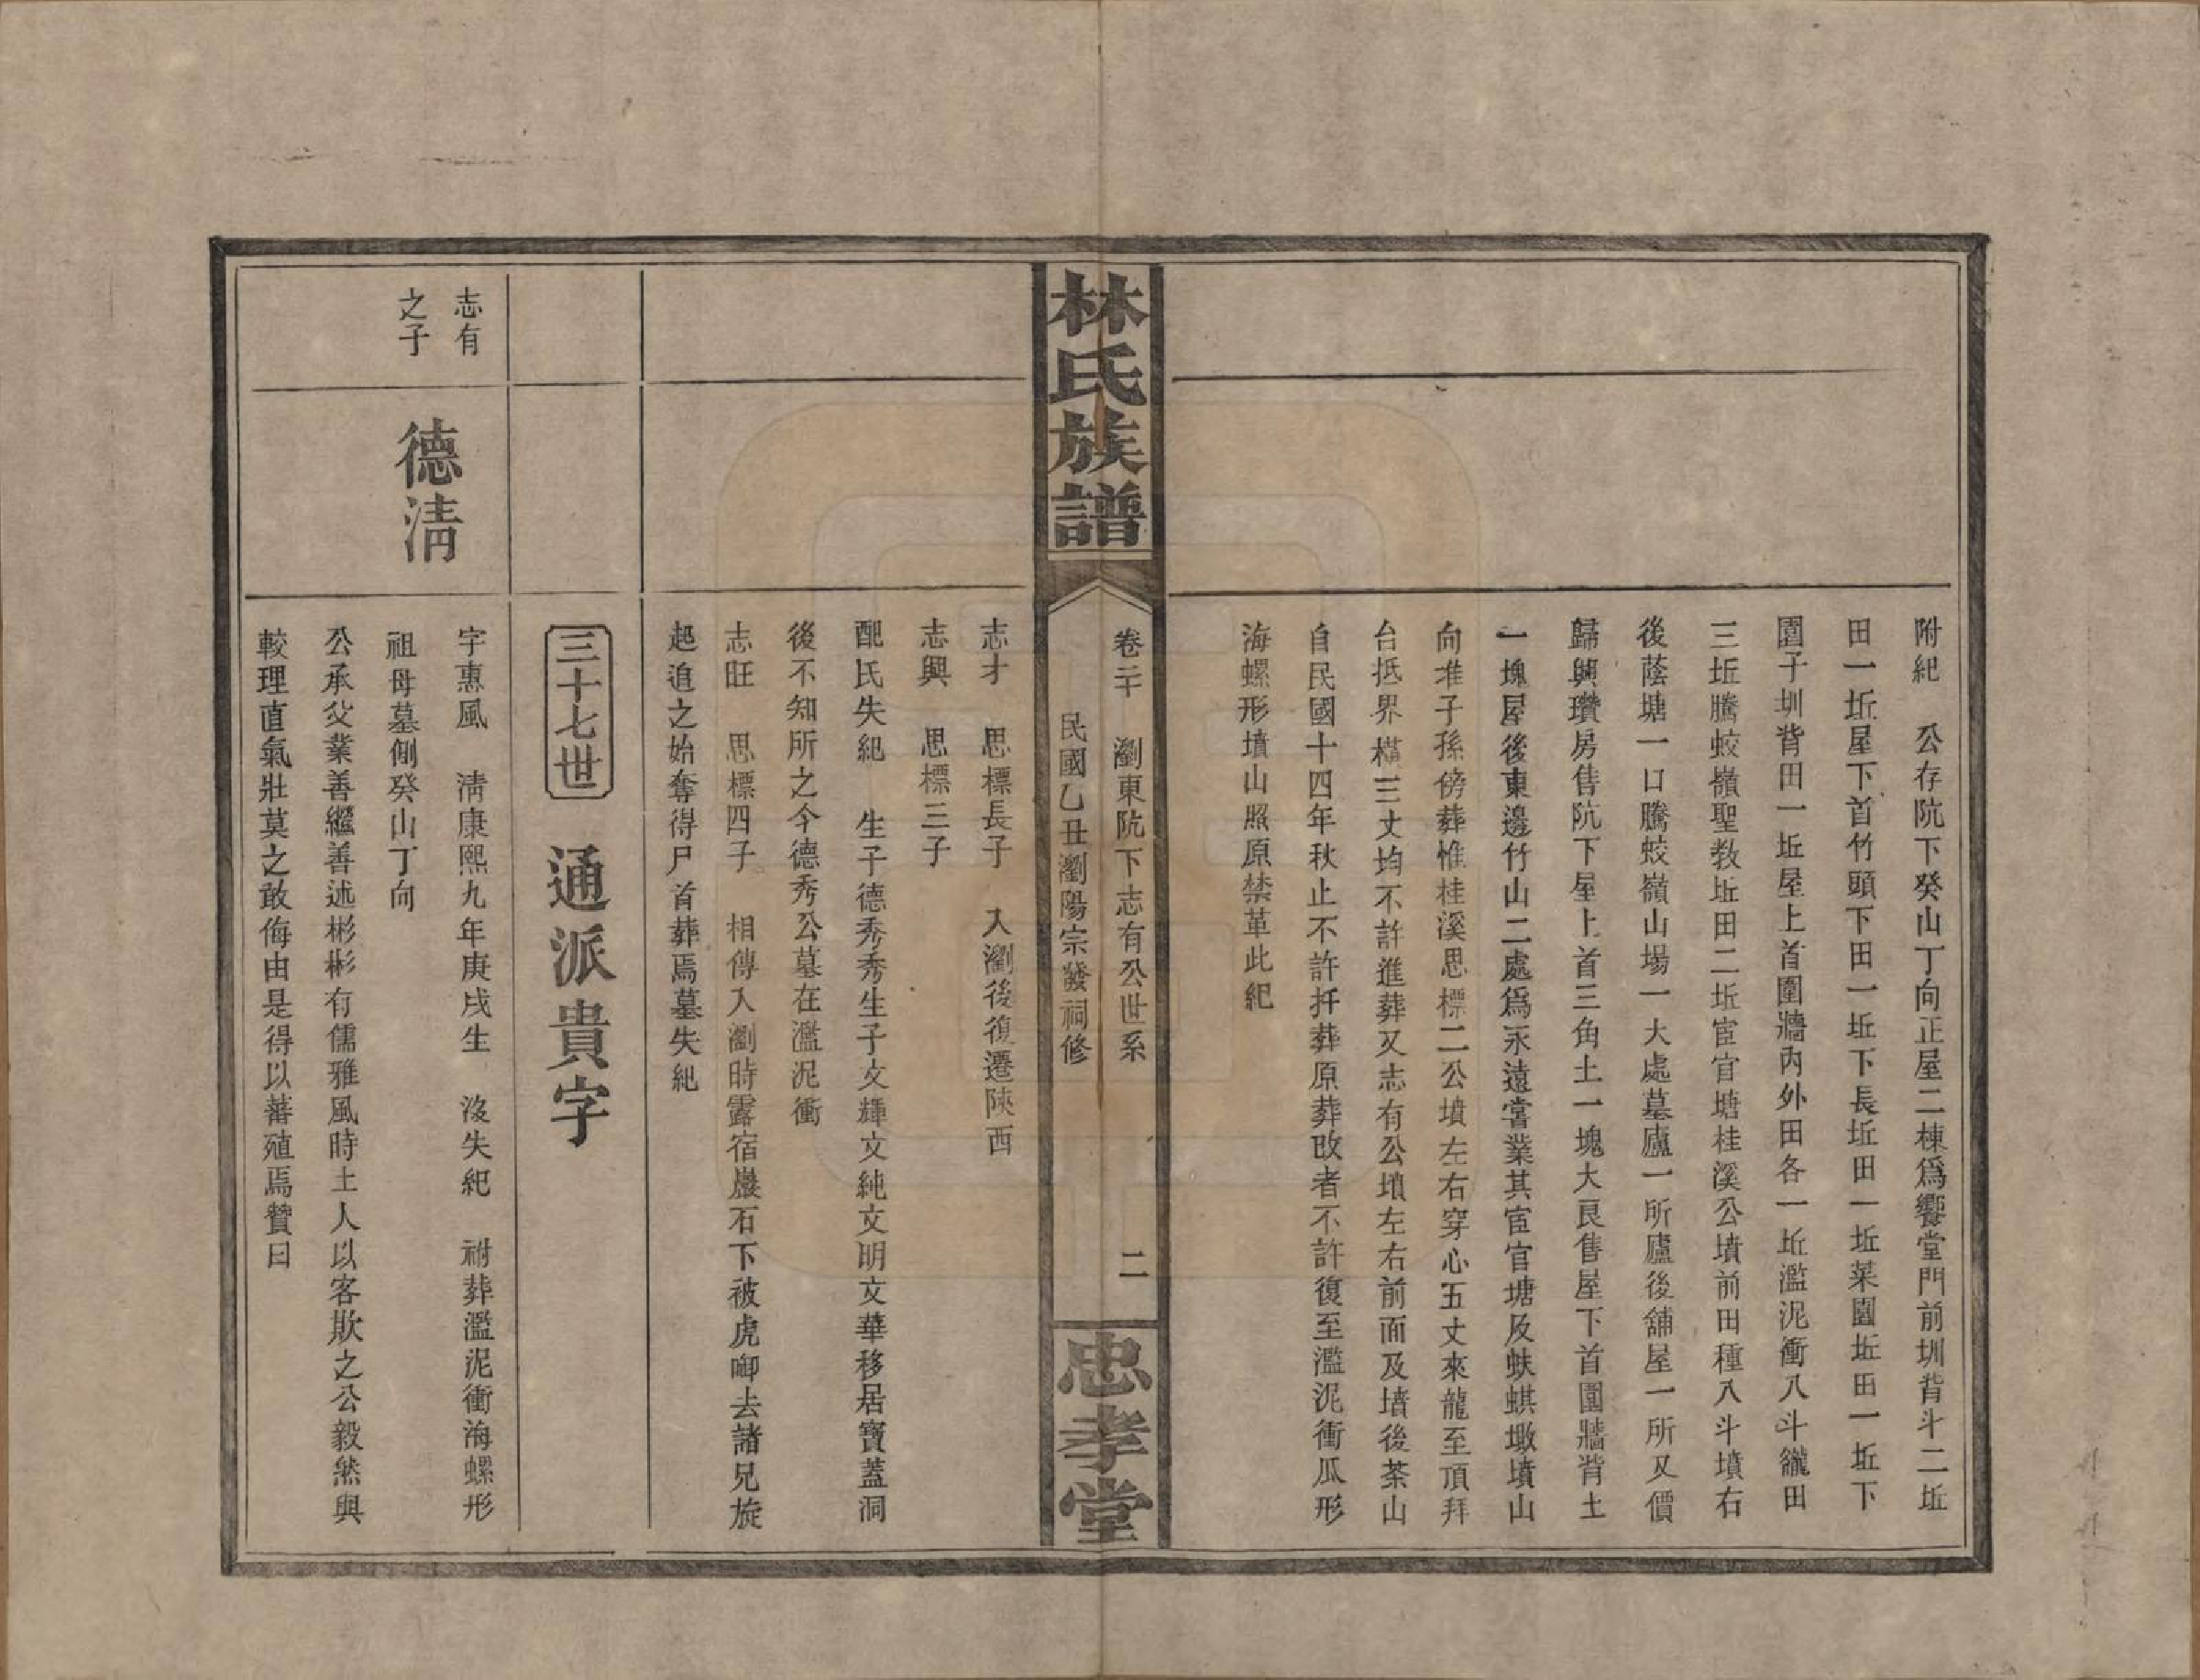 附紀　公存阬下癸山丁向正屋二棟爲饗堂門前圳背斗二坵
田一坵屋下首竹頭下田一坵下長坵田一坵菜園坵田一坵下
園子圳背田一坵屋上首圍牆內外田各一坵濫泥衝八斗䆲田
三坵騰蛟嶺聖教坵田二坵宦官塘桂溪公墳前田種八斗墳右
後蔭塘一口騰蛟嶺山場一大處墓廬一所廬後舖屋一所又價
歸興瓚房售阬下屋上首三角土一塊大良售屋下首圍牆背土
一塊屋後東邊竹山二處爲永遠嘗業其宦官塘及蚨蜞墩墳山
向准子孫傍葬惟桂溪思標二公墳左右穿心五丈來龍至頂拜
台抵界橫三丈均不許進葬又志有公墳左右前面及墳後茶山
自民國十四年秋止不許扦葬原葬改者不許復至濫泥衝瓜形
海螺形墳山照原禁革此紀
林氏族譜
卷二十　瀏東阬下志有公世系　二
民國乙丑瀏陽宗發祠修
忠孝堂
志才　思標長子　入瀏後復遷陝西
志興　思標三子
配氏失紀　生子德秀秀生子文輝文純文明文華移居寶蓋洞
後不知所之今德秀公墓在濫泥衝
志旺　思標四子　相傳入瀏時露宿巖石下被虎啣去諸兄旋
起追之始奪得尸首葬焉墓失紀
三十七世　通派貴字
志有
之子
德清
字惠風　清康熙九年庚戌生　沒失紀　祔葬濫泥衝海螺形
祖母墓側癸山丁向
公承父業善繼善述彬彬有儒雅風時土人以客欺之公毅然與
較理直氣壯莫之敢侮由是得以蕃殖焉贊曰